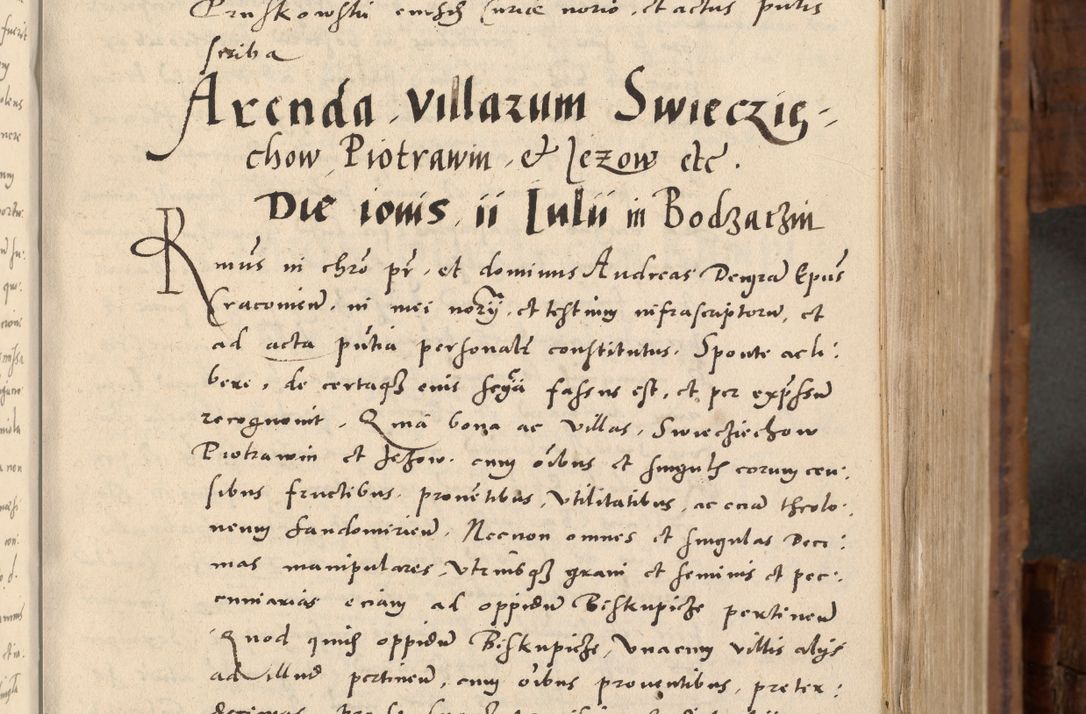 scriba
Arenda villarum Swieczie-
chow Piotrawin et Jezow etc.
Die iovis ii Iulii in Bodzaczin
Rmus in chro pr et dominus Andreas Dei gra Epus
Cracovien. in mei norii et testium infrascriptoru, et
ad acta putia personalr constitutus. Sponte ac li:
bere, de certaq eius scya fassus est, et per expssu
recognovit. Quia bona ac villas, Swieczechow
Piotrawin et Jezow. cum oibus et singulis eorum cen:
sibus fructibus, proventibus, utilitatibus, ac ecia theolo:
neum Sandomirien. Necnon omnes et singulas Deci:
mas manipulares, utriusq grani et seminis et pec:
cuniarias eciam ad oppidu Biskupicze pertinen
Quod quide oppidu Biskupicze, Unacum villis alijs
ad illud pertinen, cum oibus proventibus, preter: